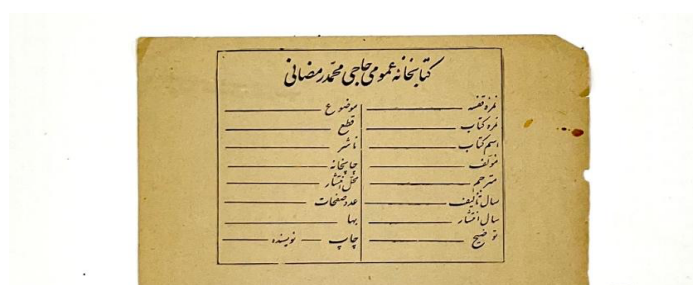 کتابخانه عمومی حاجی محمد رمضانی
نمره قفسه
نمره کتاب
اسم کتاب
مؤلف
مترجم
سال تألیف
سال انتشار
توضیح
موضوع
قطع
ناشر
چاپخانه
محل انتشار
عدد صفحات
بها
چاپ نویسنده